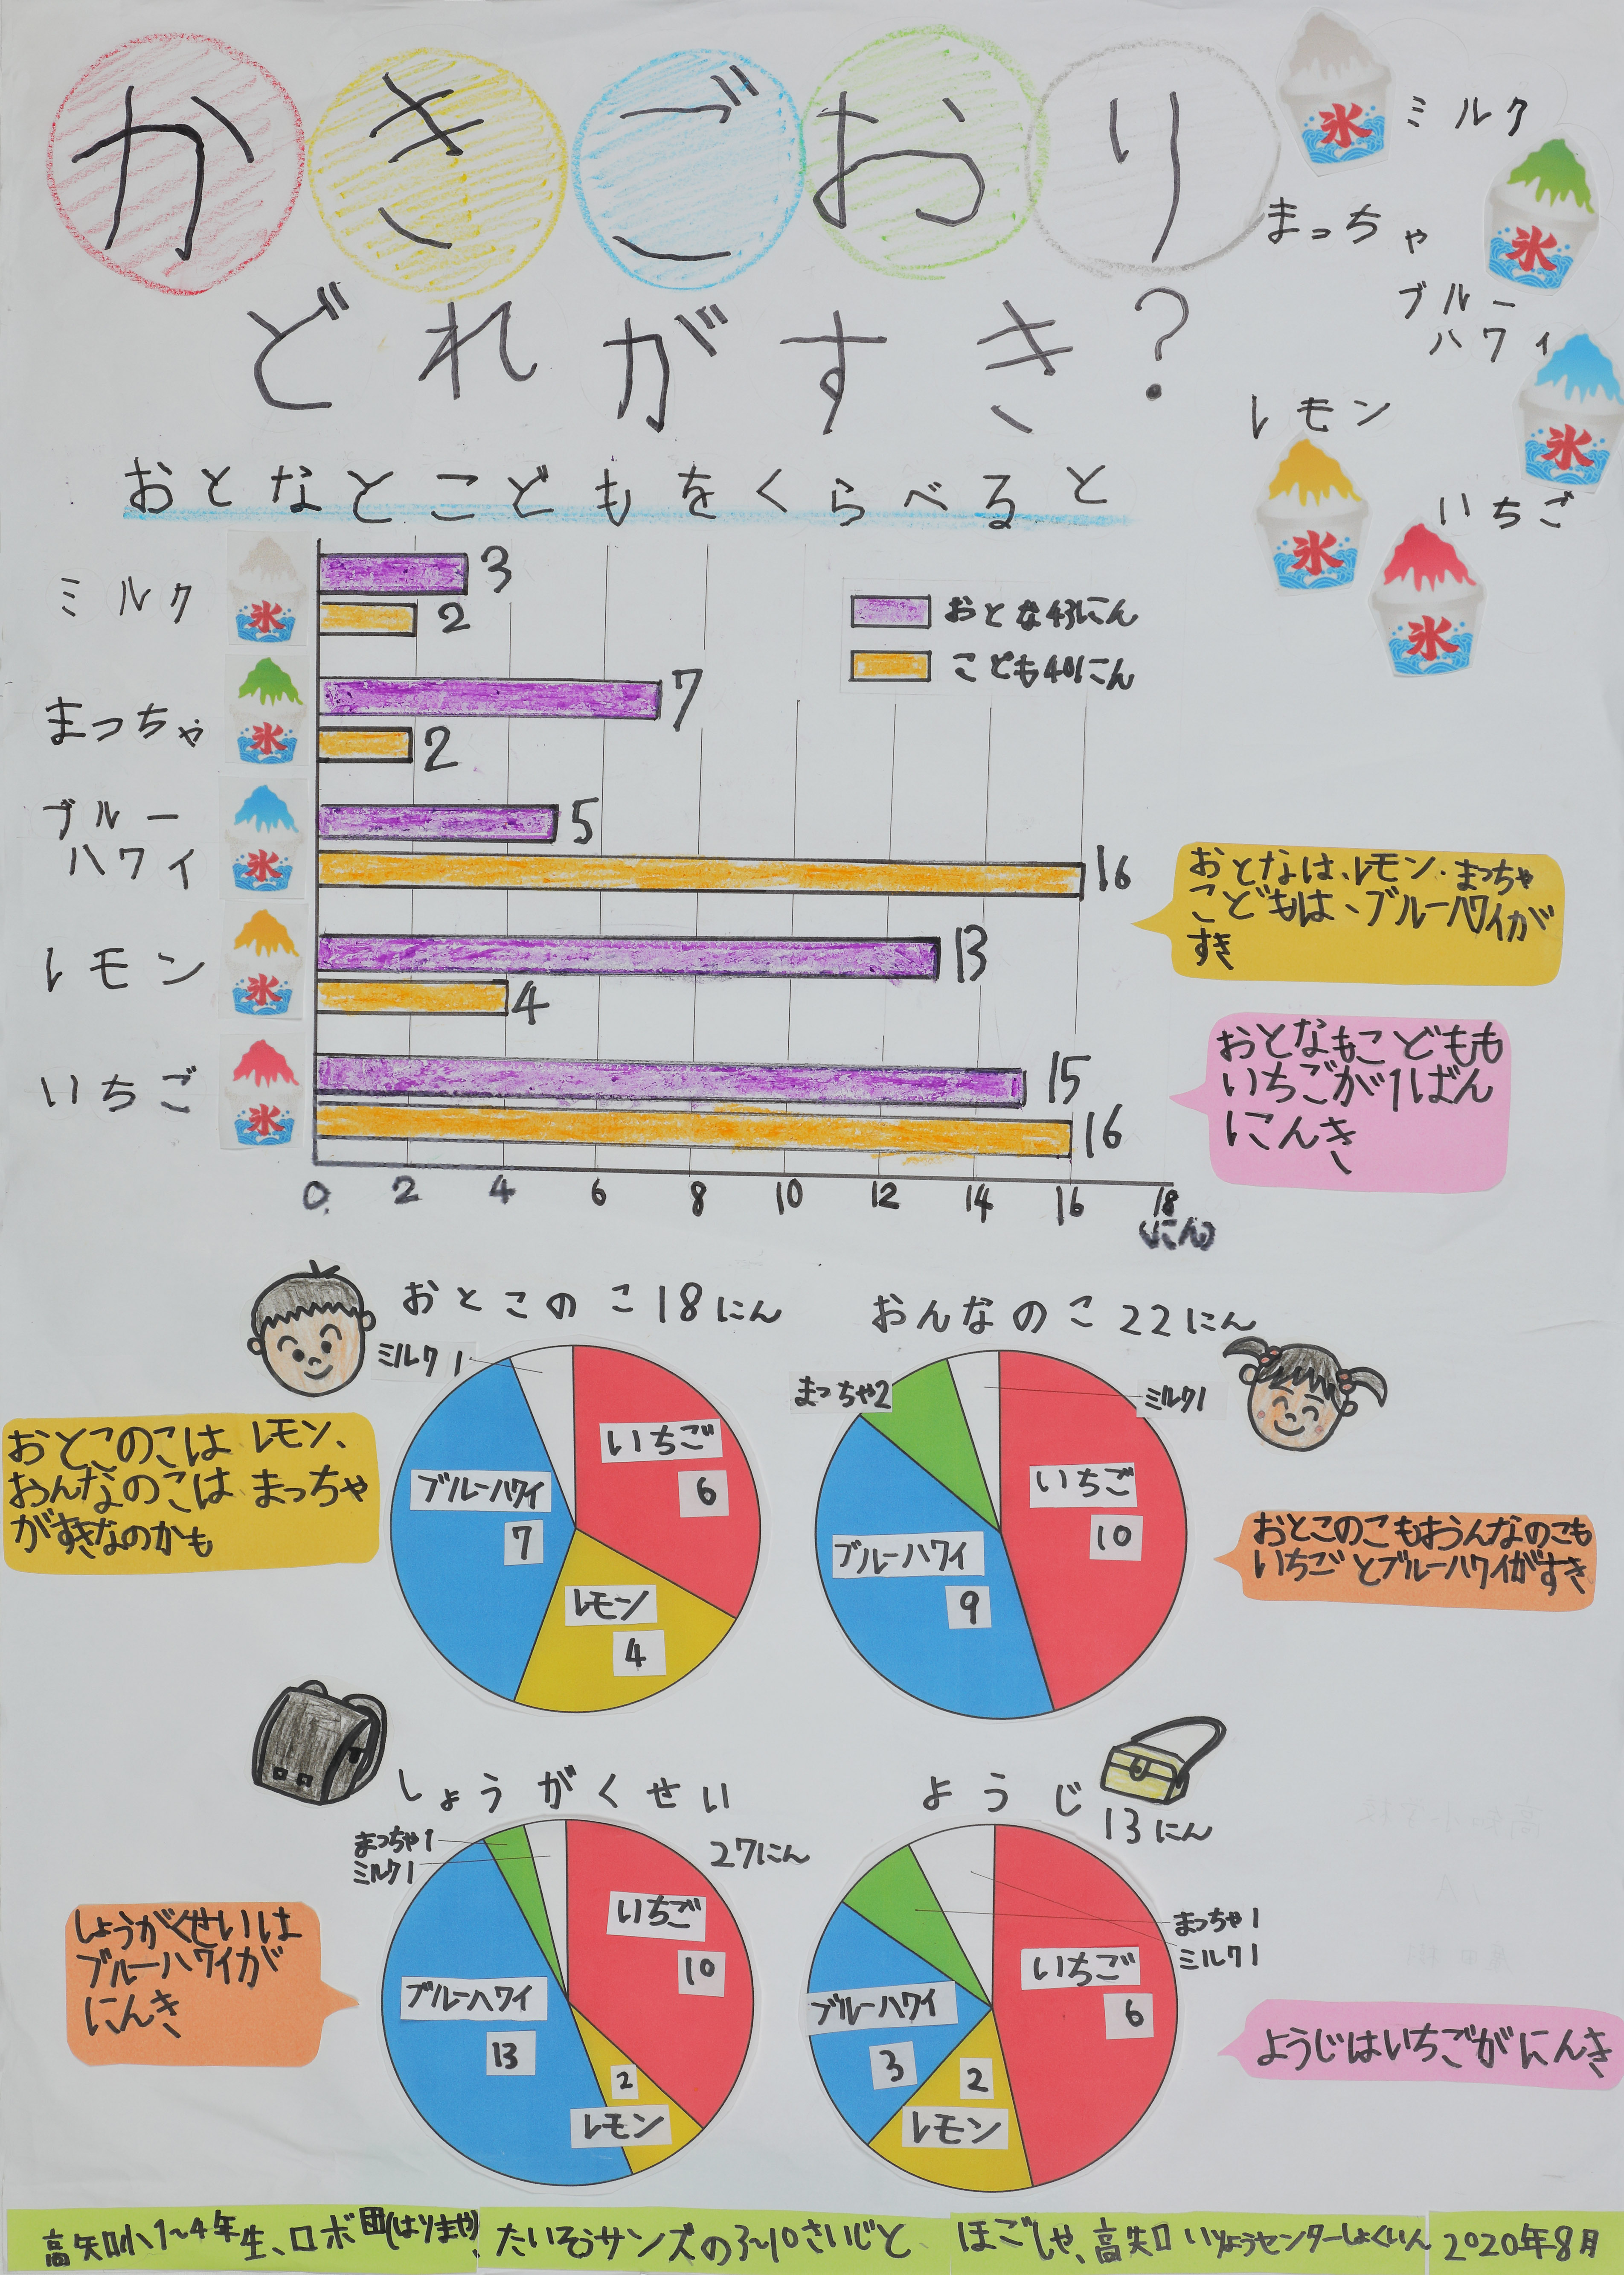 かきごおり
どれがすき?
ミルク
まっちゃ
ブルー
ハワイ
レモン
いちご
氷
氷
氷
氷
氷
おとなとこどもをくらべると
おとな43にん
こども40にん
ミルク
氷
3
2
まっちゃ
氷
7
2
ブルー
ハワイ
氷
5
16
レモン
氷
13
4
いちご
氷
15
16
0 2 4 6 8 10 12 14 16 18
(にん)
おとなは、レモン・まっちゃ
こどもは、ブルーハワイが
すき
おとなもこどもも
いちごが1ばん
にんき
おとこのこ18にん
ミルク1
いちご
6
ブルーハワイ
7
レモン
4
おとこのこは レモン、
おんなのこは まっちゃ
がすきなのかも
おんなのこ22にん
まっちゃ2
ミルク1
いちご
10
ブルーハワイ
9
おとこのこもおんなのこも
いちごとブルーハワイがすき
しょうがくせい
27にん
まっちゃ1
ミルク1
いちご
10
ブルーハワイ
13
2
レモン
しょうがくせいは
ブルーハワイが
にんき
ようじ
13にん
まっちゃ1
ミルク1
いちご
6
ブルーハワイ
3
2
レモン
ようじはいちごがにんき
高知小1~4年生、ロボ団(はりまや)、たいそうサンズの3~10さいじと ほごしゃ、高知口いりょうセンターしょくいん 2020年8月